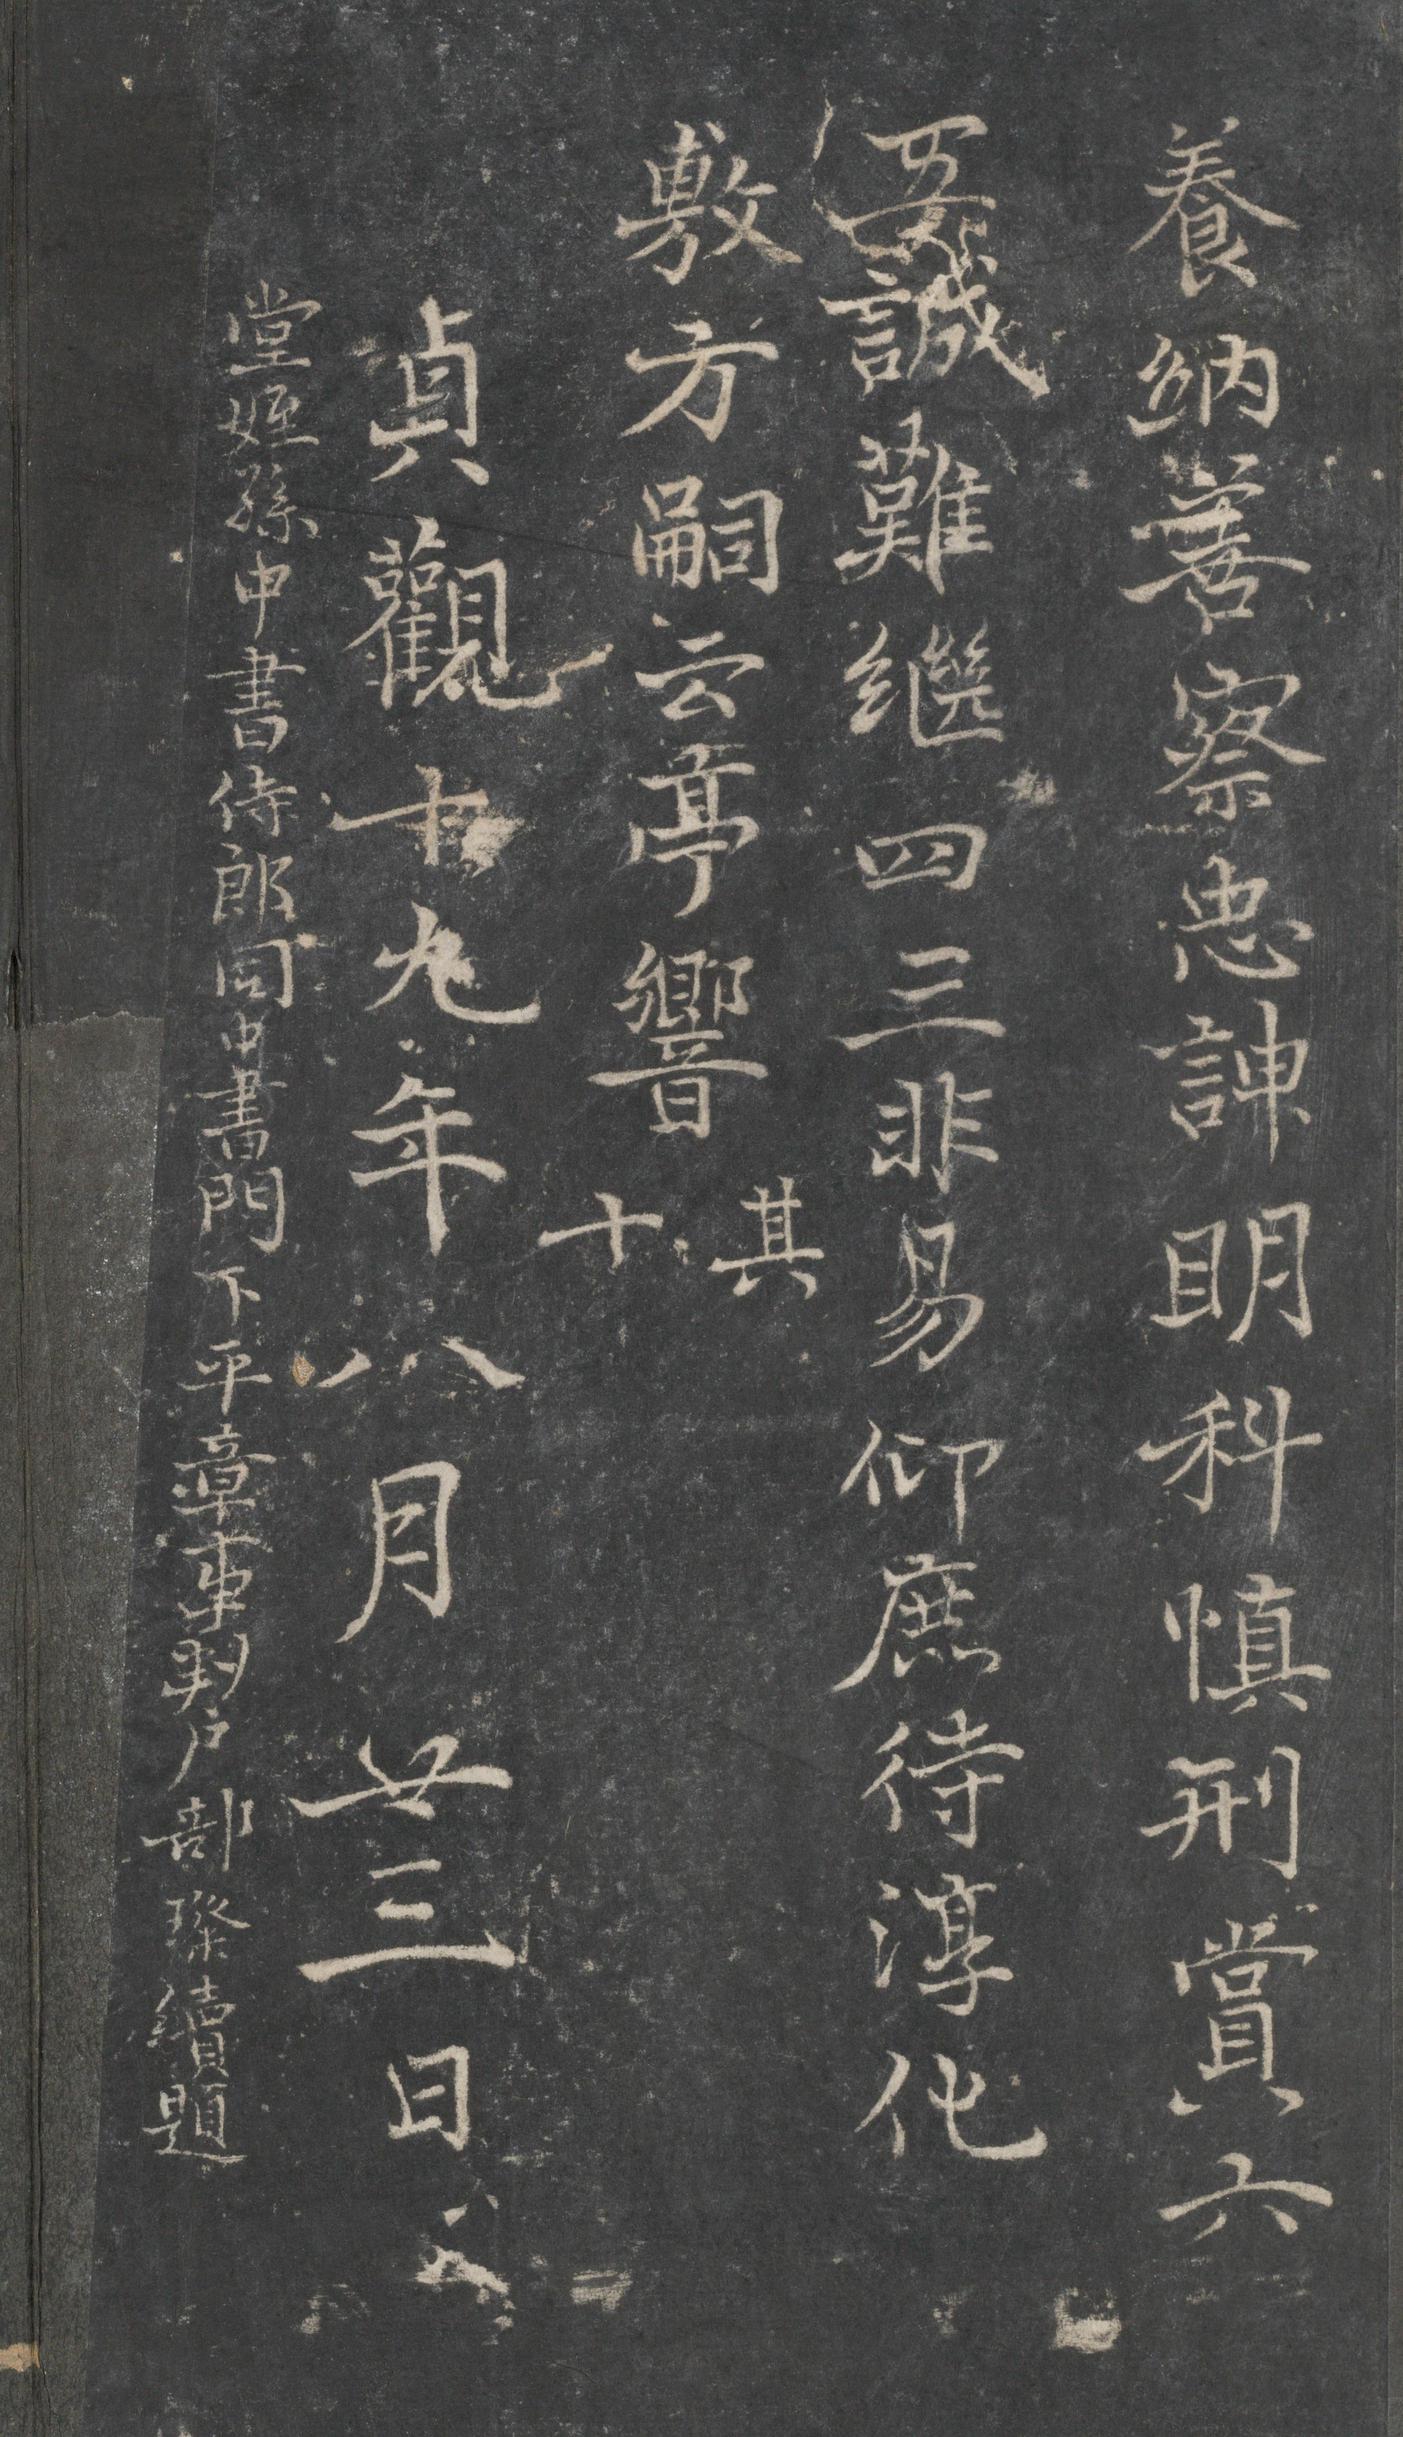 養納善察忠諫眀科慎刑賞六
五誠難繼四三非易仰庶待淳化
敷方嗣云亭響其十
貞觀十九年八月廿三日
堂姪孫中書侍郎同中書門下平章事判户部璨續題